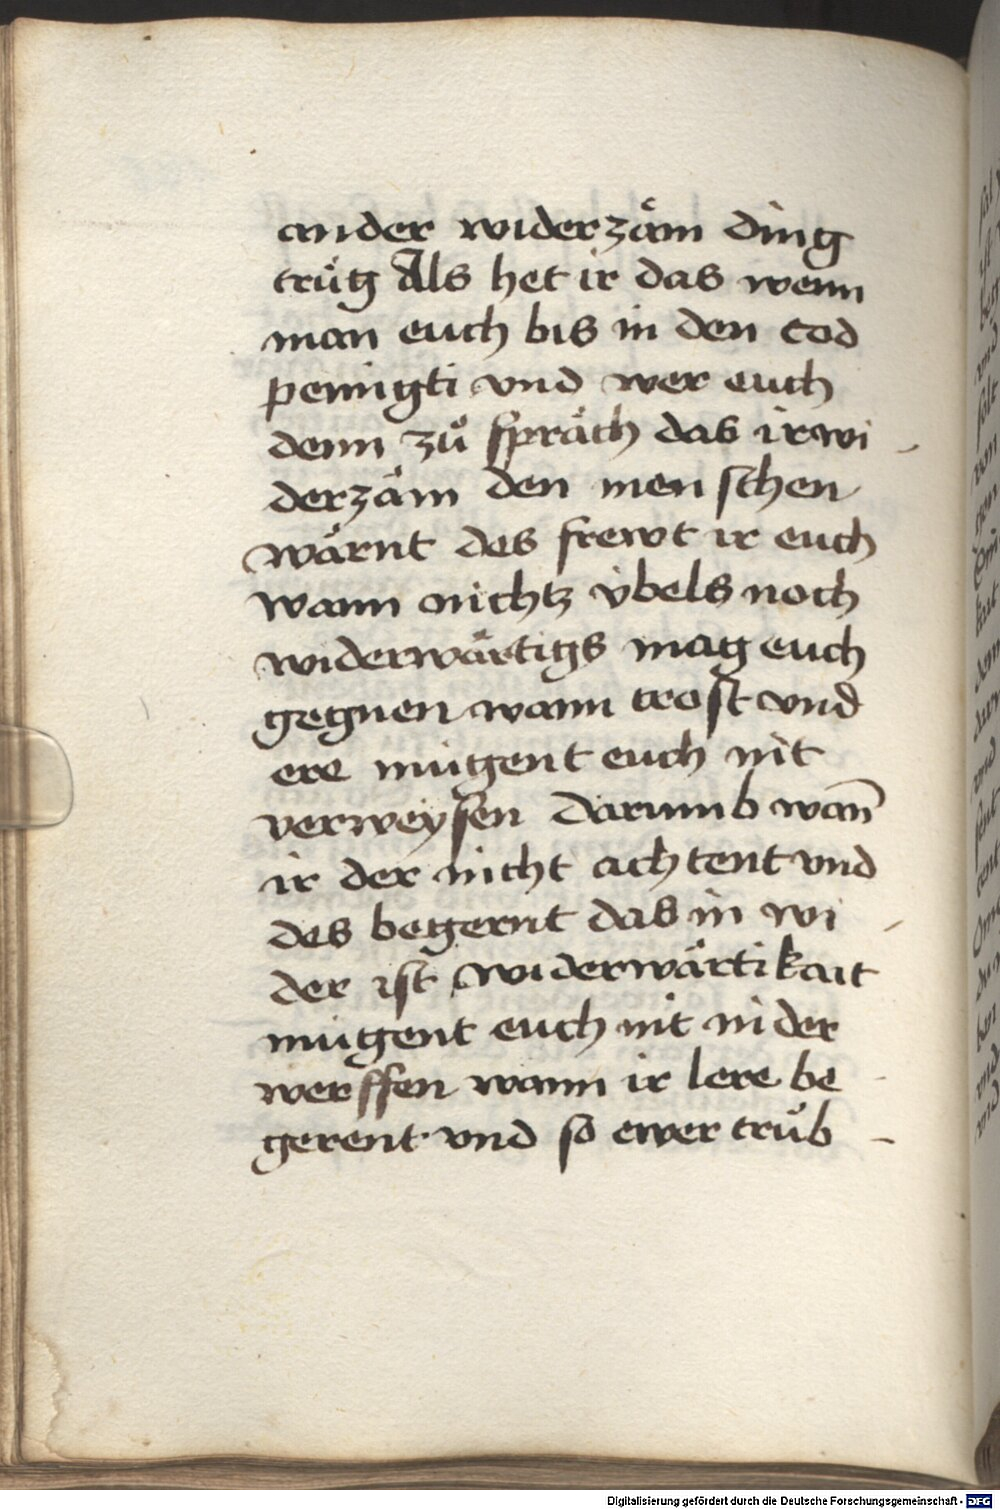 ander widerzäm ding
trüg Als het ir das wenn
man euch bis in den tod
peinigti vnd wer euch
denn zů spräch das ir wi
derzäm den menschen
wärnt des frewt ir euch
wann nichtz v̇bels noch
widerwärtigs mag euch
gegnen wann trost vnd
ere mügent euch nit
verweysen darumb wan̄
ir der nicht achtent vnd
des begernt das in wi
der ist widerwärtikait
mügent euch nit nider
werffen wann ir lere be
gerent vnd so ewer trüb
Digitalisierung gefördert durch die Deutsche Forschungsgemeinschaft - DFG